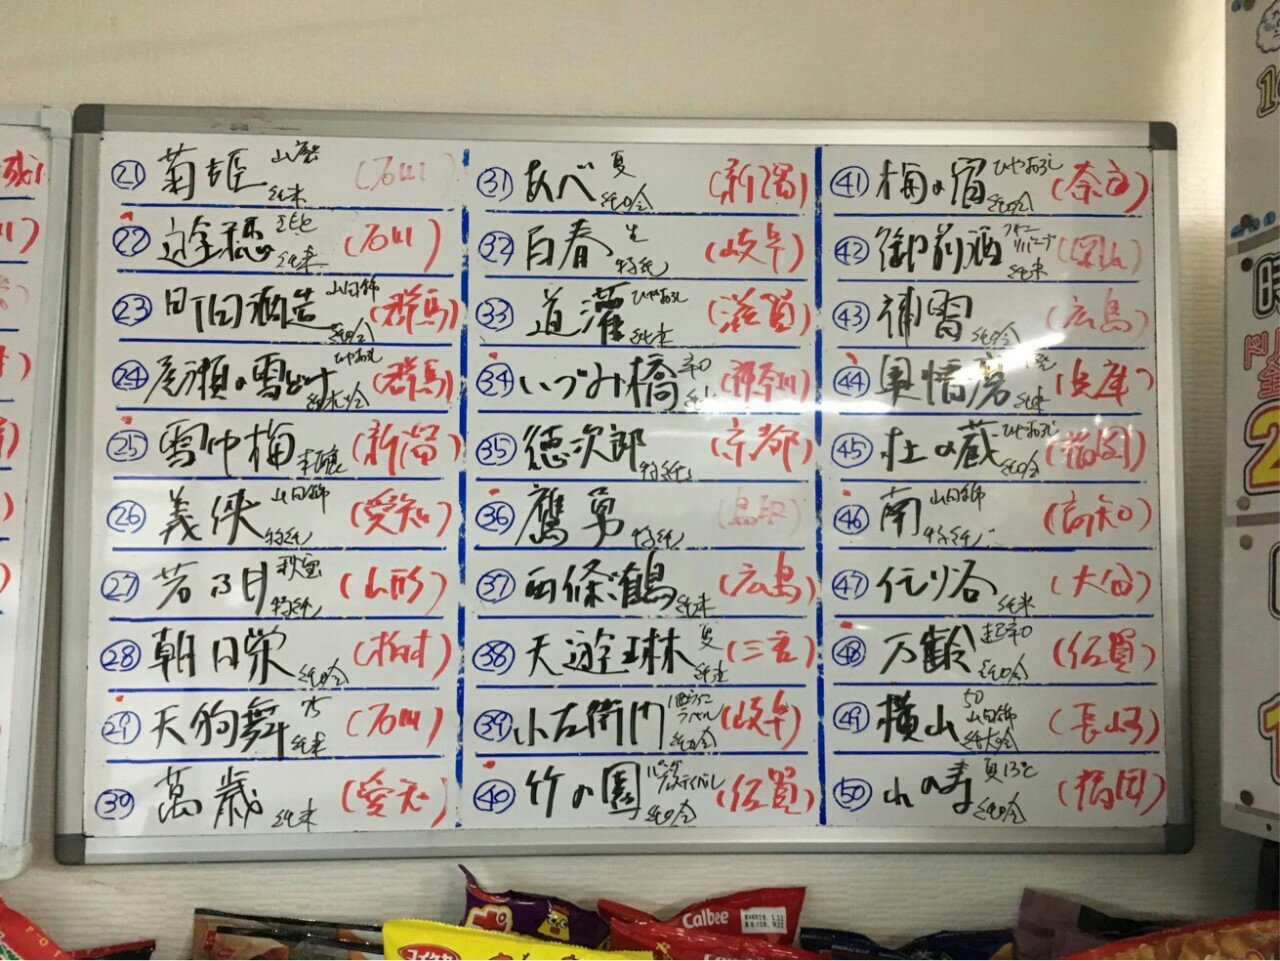 ㉑ 菊姫 山廃 純米 (石川)
㉒ 遊穂 純米 (石川)
㉓ 町田酒造 山田錦 純吟 (群馬)
㉔ 尾瀬の雪どけ ひやおろし 純大吟 (群馬)
㉕ 雪中梅 本醸 (新潟)
㉖ 義侠 山田錦 特純 (愛知)
㉗ 若乃井 秋酒 特純 (山形)
㉘ 朝日栄 純吟 (栃木)
㉙ 天狗舞 純米 (石川)
㉚ 萬歳 純米 (愛知)
㉛ あべ 夏 純吟 (新潟)
㉜ 百春 生 特純 (岐阜)
㉝ 道灌 ひやおろし 純米 (滋賀)
㉞ いづみ橋 辛口 (神奈川)
㉟ 徳次郎 特純 (京都)
㊱ 鷹勇 特純 (鳥取)
㊲ 西條鶴 純米 (広島)
㊳ 天遊琳 夏 純米 (三重)
㊴ 小左衛門 ラベル 純吟 (岐阜)
㊵ 竹の園 純吟 (佐賀)
㊶ 梅の宿 ひやおろし 純吟 (奈良)
㊷ 御前酒 純米 (岡山)
㊸ 補雷 純吟 (広島)
㊹ 奥播磨 純米 (兵庫)
㊺ 杜の蔵 ひやおろし 純吟 (福岡)
㊻ 南 山田錦 特純 (高知)
㊼ 純米 (大分)
㊽ 万齢 超辛口 純吟 (佐賀)
㊾ 横山 50 山田錦 純大吟 (長崎)
㊿ 山の寿 夏13℃ 純吟 (福岡)
Calbee
コイケヤ